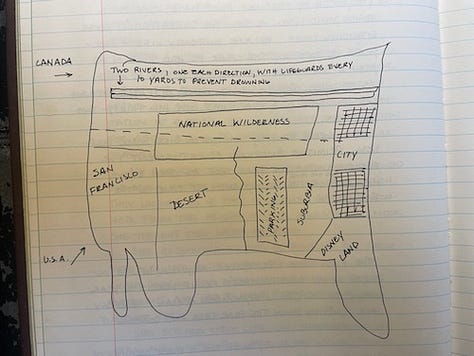 CANADA
TWO RIVERS, ONE EACH DIRECTION, WITH LIFEGUARDS EVERY
10 YARDS TO PREVENT DROWNING
NATIONAL WILDERNESS
CITY
SAN
FRANCISCO
DESERT
PARKING
SUBURBIA
DISNEY
LAND
U.S.A.